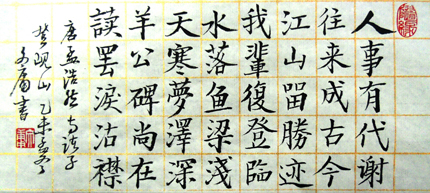 人事有代謝
往来成古今
江山留勝迹
我輩復登臨
水落鱼梁淺
天寒夢澤深
羊公碑尚在
讀罢淚沾襟
唐孟浩然与诸子
登岘山乙未孟
書